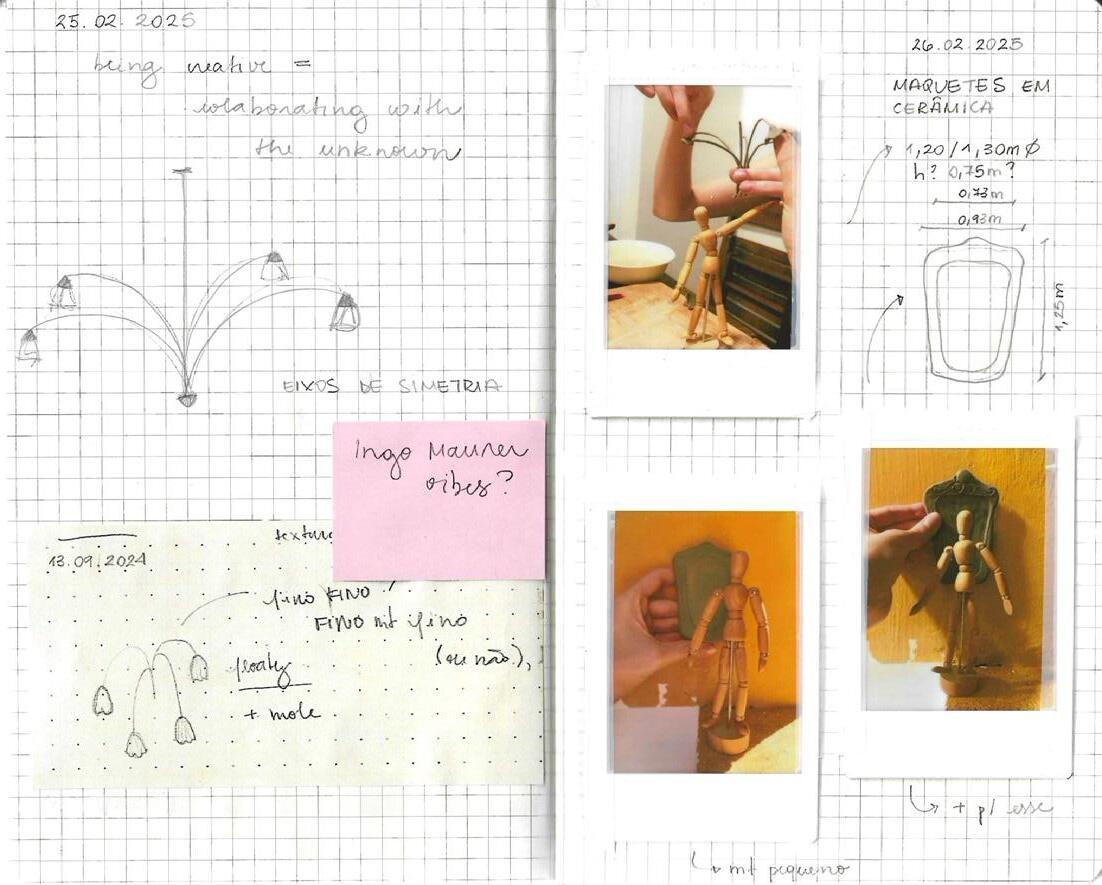 25.02.2025
being creative =
colaborating with
the unknown
EIXOS DE SIMETRIA
Ingo Maurer
vibes?
13.09.2024
textura
fino FINO
FINO mt fino
(ou não),
floaty
+ mole
26.02.2025
MAQUETES EM
CERÂMICA
1,20/1,30m Ø
h? 0,75m?
0,73m
0,93m
1,25m
+ p/ esse
mt pequeno